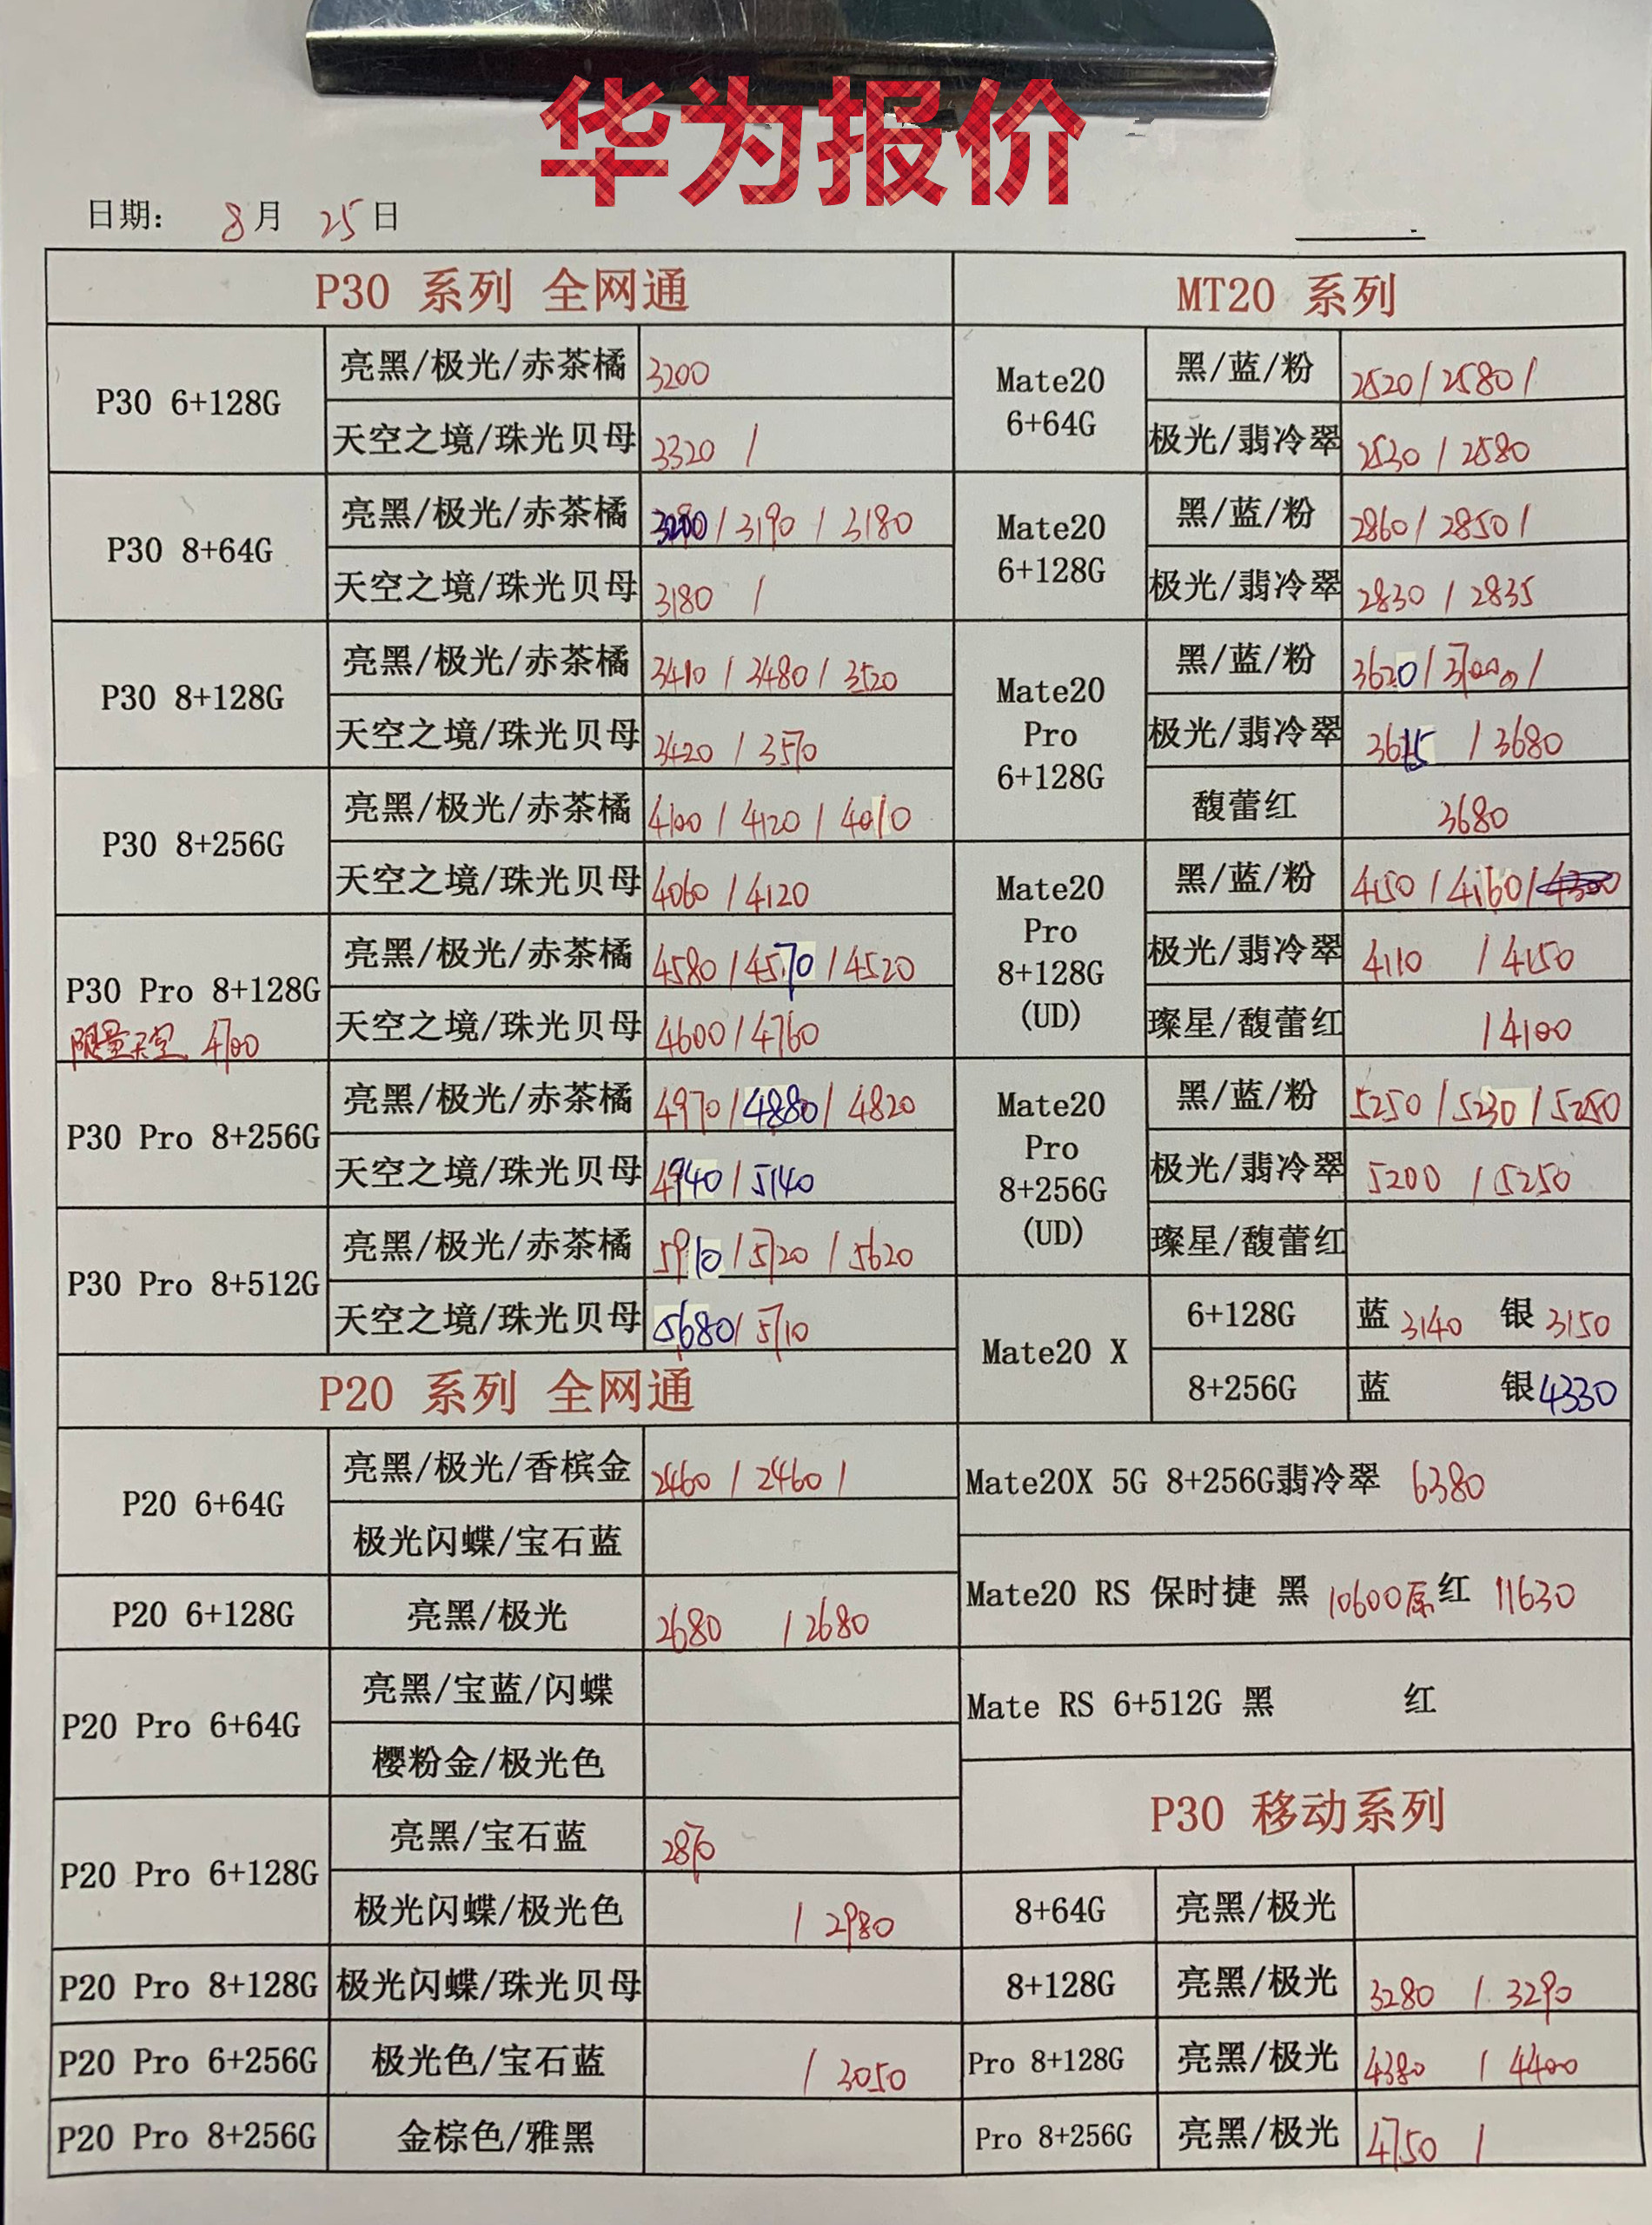 华为报价
日期: 8月 25日
P30 系列 全网通
P30 6+128G
亮黑/极光/赤茶橘 3200
天空之境/珠光贝母 3320 /
P30 8+64G
亮黑/极光/赤茶橘 3200/3190/3180
天空之境/珠光贝母 3180 /
P30 8+128G
亮黑/极光/赤茶橘 3410/3480/3520
天空之境/珠光贝母 3420/3570
P30 8+256G
亮黑/极光/赤茶橘 4100/4120/4010
天空之境/珠光贝母 4060/4120
P30 Pro 8+128G
限量天空 4700
亮黑/极光/赤茶橘 4580/4570/4520
天空之境/珠光贝母 4600/4760
P30 Pro 8+256G
亮黑/极光/赤茶橘 4970/4880/4820
天空之境/珠光贝母 4940/5140
P30 Pro 8+512G
亮黑/极光/赤茶橘 5910/5720/5620
天空之境/珠光贝母 5680/5710
P20 系列 全网通
P20 6+64G
亮黑/极光/香槟金 2460/2460/
极光闪蝶/宝石蓝
P20 6+128G
亮黑/极光 2680 /2680
P20 Pro 6+64G
亮黑/宝蓝/闪蝶
樱粉金/极光色
P20 Pro 6+128G
亮黑/宝石蓝 2870
极光闪蝶/极光色 / 2980
P20 Pro 8+128G 极光闪蝶/珠光贝母
P20 Pro 6+256G 极光色/宝石蓝 / 3050
P20 Pro 8+256G 金棕色/雅黑
MT20 系列
Mate20
6+64G
黑/蓝/粉 2520/2580/
极光/翡冷翠 2530/2580
Mate20
6+128G
黑/蓝/粉 2860/2850/
极光/翡冷翠 2830/2835
Mate20
Pro
6+128G
黑/蓝/粉 3620/ /
极光/翡冷翠 3615 /3680
馥蕾红 3680
Mate20
Pro
8+128G
(UD)
黑/蓝/粉 4150/4160/4300
极光/翡冷翠 4110 /4150
璨星/馥蕾红 /4100
Mate20
Pro
8+256G
(UD)
黑/蓝/粉 5250/5230/5250
极光/翡冷翠 5200 /5250
璨星/馥蕾红
Mate20 X
6+128G 蓝 3140 银 3150
8+256G 蓝 银 4330
Mate20X 5G 8+256G翡冷翠 6380
Mate20 RS 保时捷 黑 10600原 红 11630
Mate RS 6+512G 黑 红
P30 移动系列
8+64G 亮黑/极光
8+128G 亮黑/极光 3280 / 3290
Pro 8+128G 亮黑/极光 4380 / 4400
Pro 8+256G 亮黑/极光 4750 /